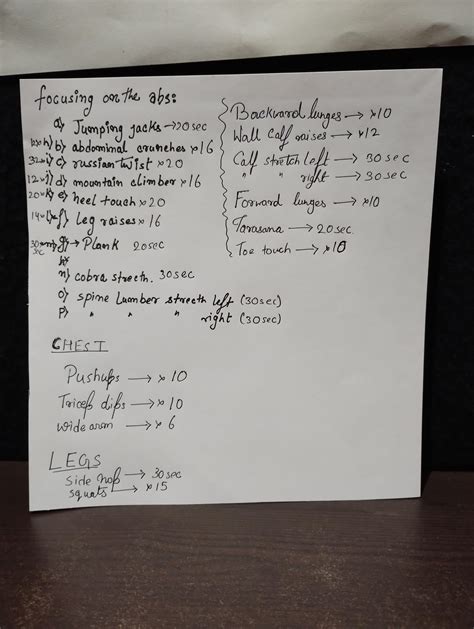 focusing on the abs:
a) Jumping jacks → 20 sec
h) b) abdominal crunches × 16
32× i) c) russian twist × 20
12× j) d) mountain climber × 16
20× k) e) heel touch × 20
14× l) f) Leg raises × 16
30 sec m) g) → Plank 20sec
n) cobra streetn. 30sec
o) spine Lumber streeth left (30sec)
p) " " " right (30sec)
CHEST
Pushups → × 10
Tricep dips → × 10
wide arm → × 6
LEGS
side hop → 30 sec
squats → × 15
Backward lunges → × 10
Wall calf raises → × 12
Calf stretch left → 30 sec
" " right → 30 sec
Forward lunges → × 10
Tarasana → 20 sec.
Toe touch → × 10